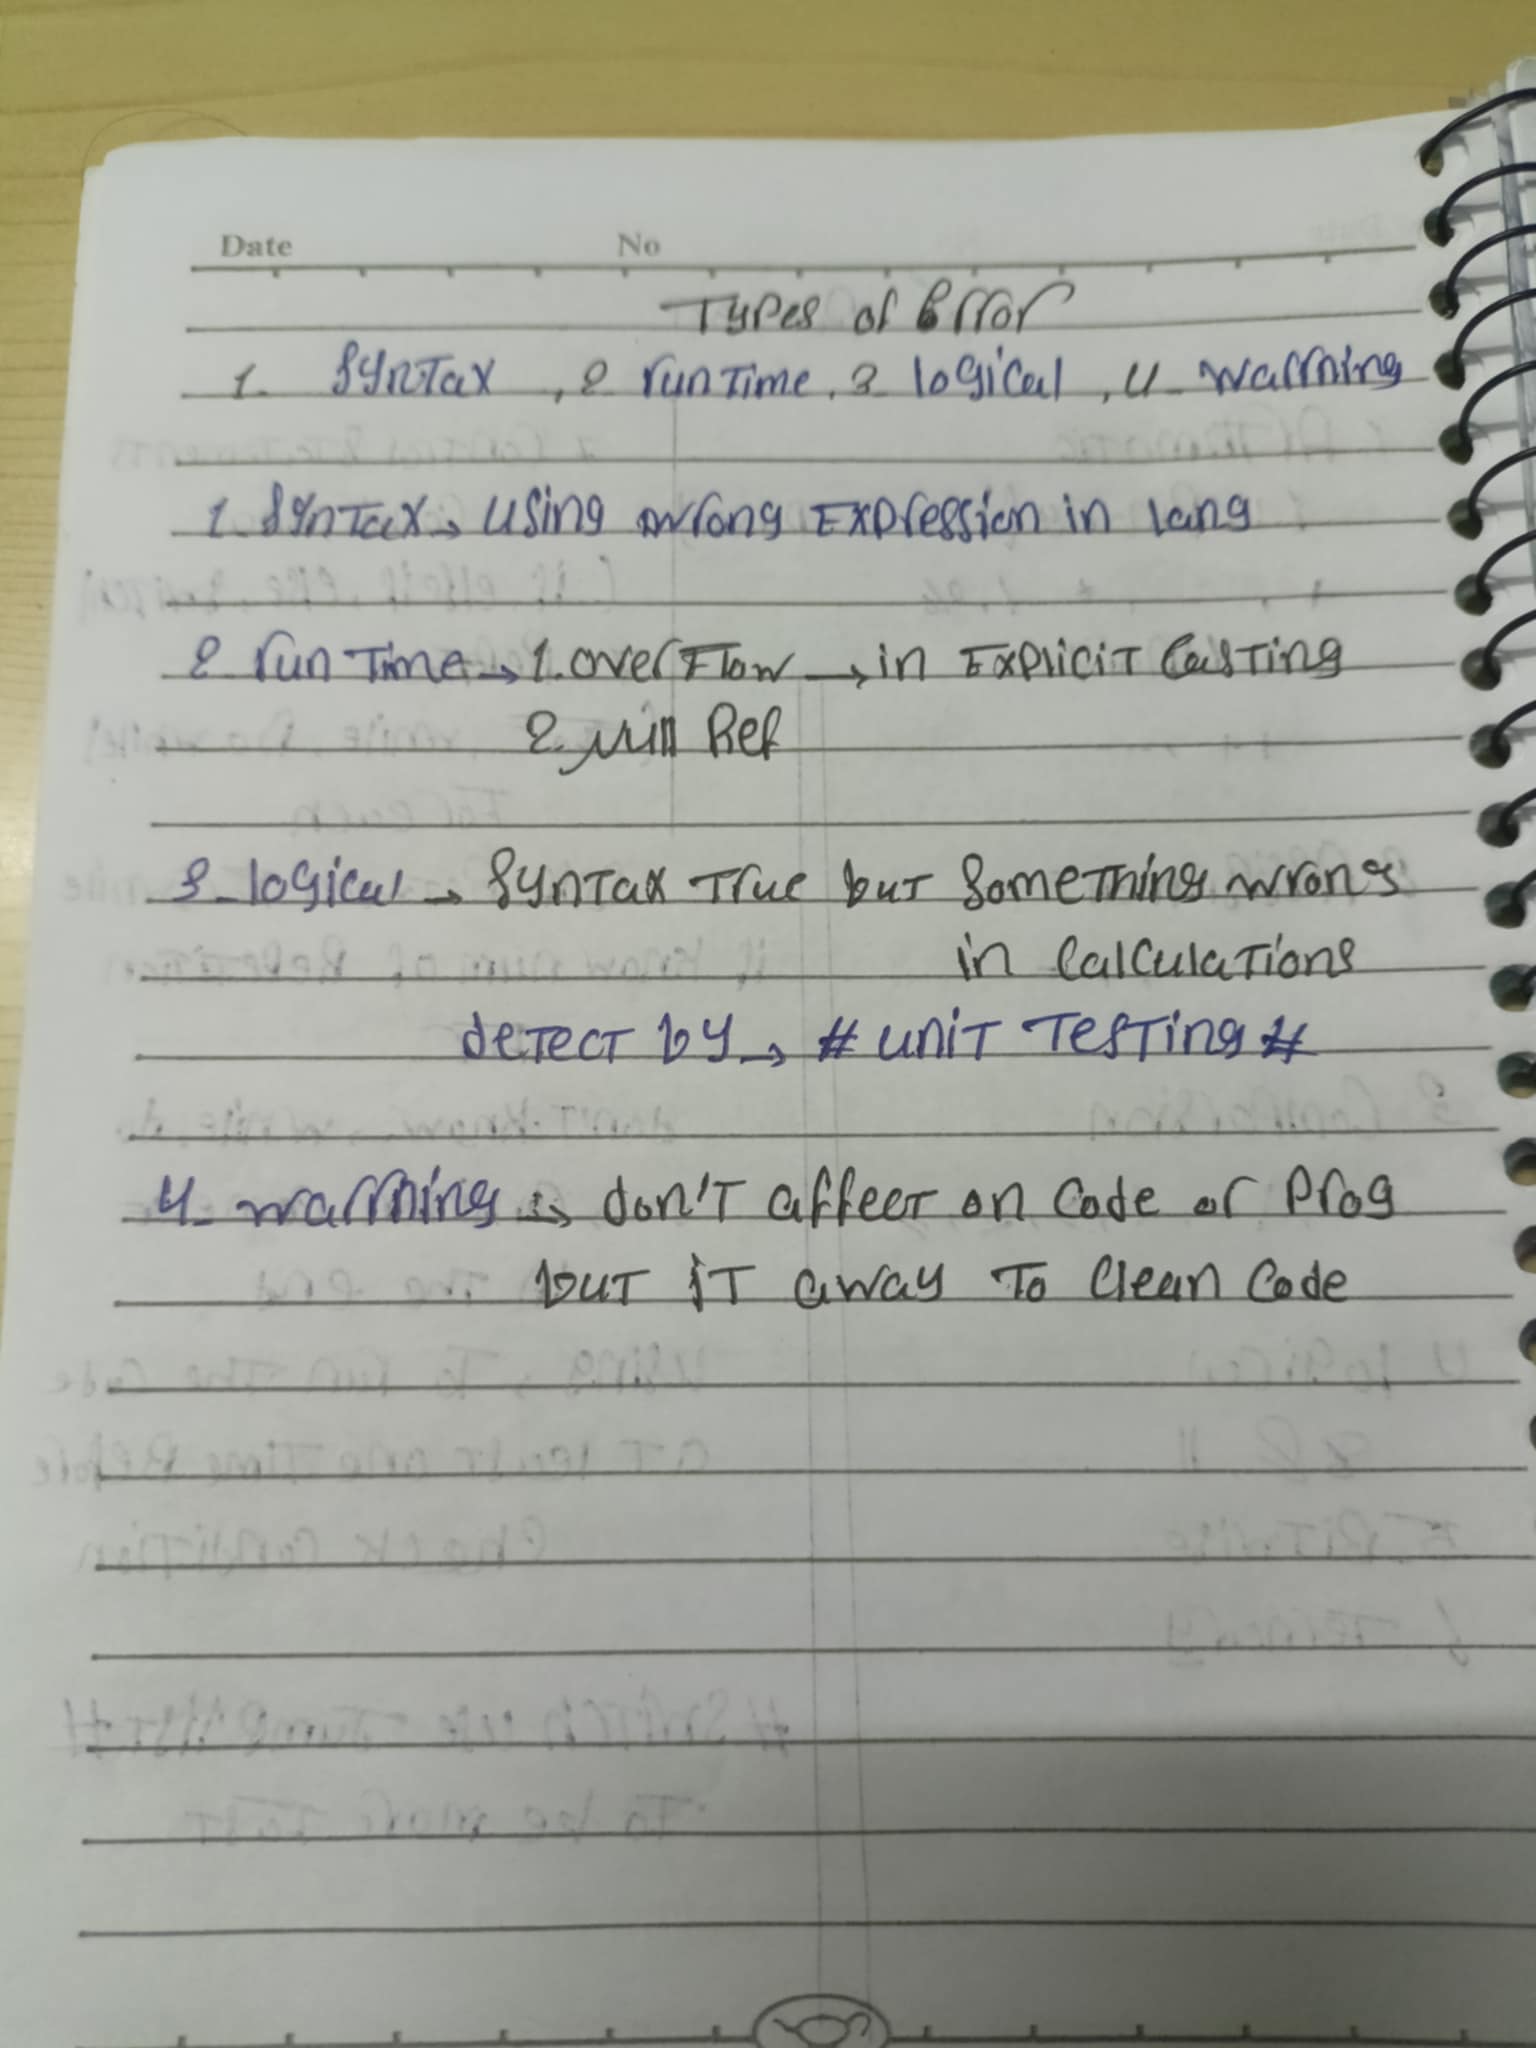 Date No
Types of Error
1. Syntax , 2 runtime , 3 logical , 4- warrning
1. Syntax → using wrong Expression in lang
2 run Time → 1. over Flow → in Explicit Casting
2. Null Ref
3- logical → Syntax True but Something wrong
in Calculations
detect by → # unit Testing #
4- warrning → don't affect on Code or Prog
but it away To Clean Code